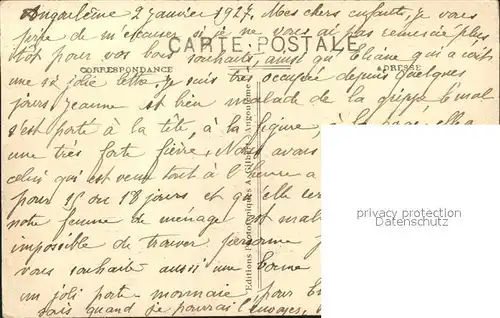 Angoulême 2 janvier 1927. Mes chers enfants, je vous
prie de m'excuser si je ne vous ai pas remercié plus
CARTE POSTALE
tôt pour vos bons souhaits, ainsi qu'Eliane qui a écrit
CORRESPONDANCE
ADRESSE
une si jolie lettre. Je suis très occupée depuis quelques
jours Jeanne est bien malade de la grippe le mal
s'est porté à la tête, à la figure, à la elle a
une très forte fièvre. Nous avons
celui qui est venu tout à l'heure a
pour 15 ou 18 jours et qu'elle
notre femme de ménage est mal
impossible de trouver personne
vous souhaite aussi une bonne
un joli porte-monnaie pour
sais quand je pourrai l'envoyer,
Editions Photographiques A. Gilbert, Angoulême
privacy protection
Datenschutz